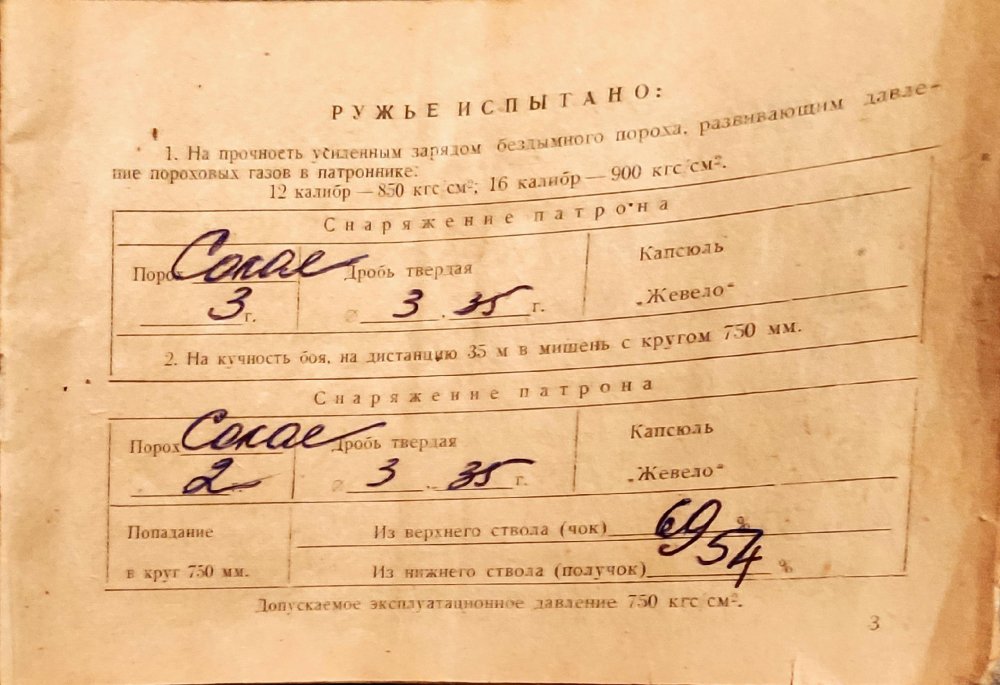 РУЖЬЕ ИСПЫТАНО:
1. На прочность усиленным зарядом бездымного пороха, развивающим давле-
ние пороховых газов в патроннике:
12 калибр — 850 кгс см²; 16 калибр — 900 кгс см².
Снаряжение патрона
Порох Сокол Дробь твердая Капсюль
3 г. ⌀ 3 . 35 г. „Жевело“
2. На кучность боя, на дистанцию 35 м в мишень с кругом 750 мм.
Снаряжение патрона
Порох Сокол Дробь твердая Капсюль
2 г. ⌀ 3 . 35 г. „Жевело“
Попадание Из верхнего ствола (чок) 69 %
в круг 750 мм. Из нижнего ствола (получок) 54 %
Допускаемое эксплуатационное давление 750 кгс см².
3